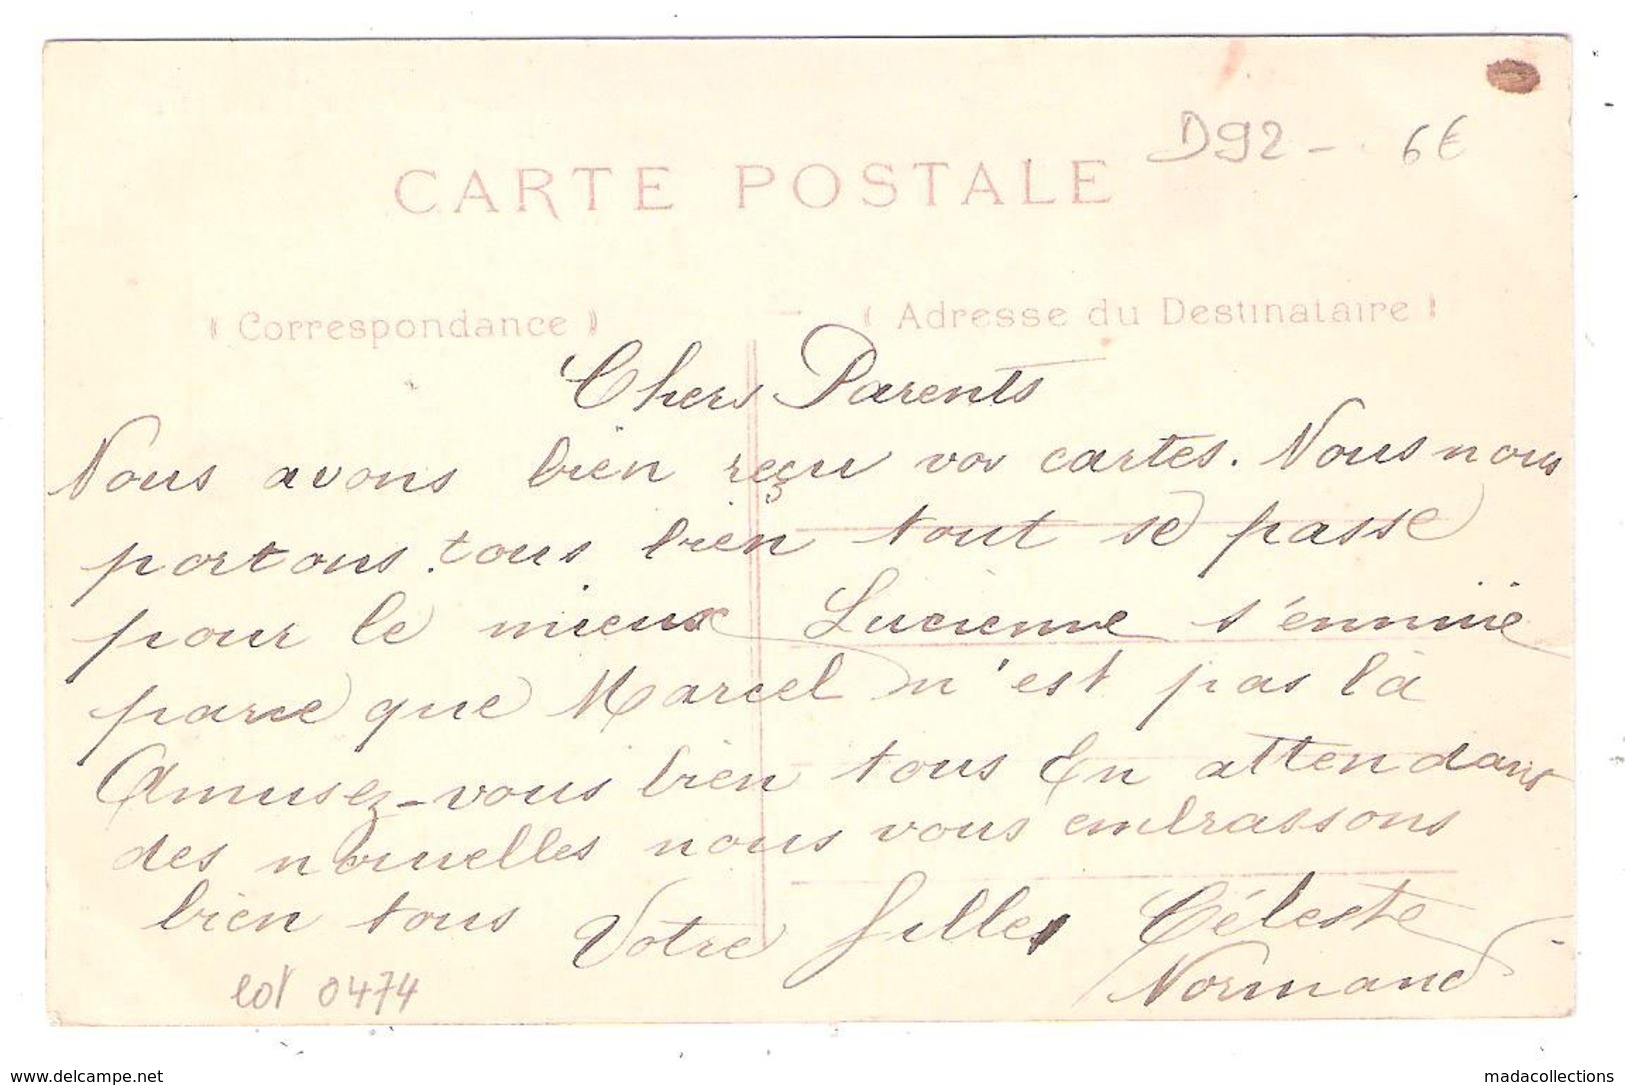 D92 - 6€
CARTE POSTALE
( Correspondance ) - ( Adresse du Destinataire )
Chers Parents
Nous avons bien reçu vos cartes. Nous nous
portons tous bien tout se passe
pour le mieux Lucienne s'ennuie
parce que Marcel n'est pas là
Amusez-vous bien tous En attendant
des nouvelles nous vous embrassons
bien tous Votre fille Céleste
Normand
lot 0474
www.delcampe.net
madacollections